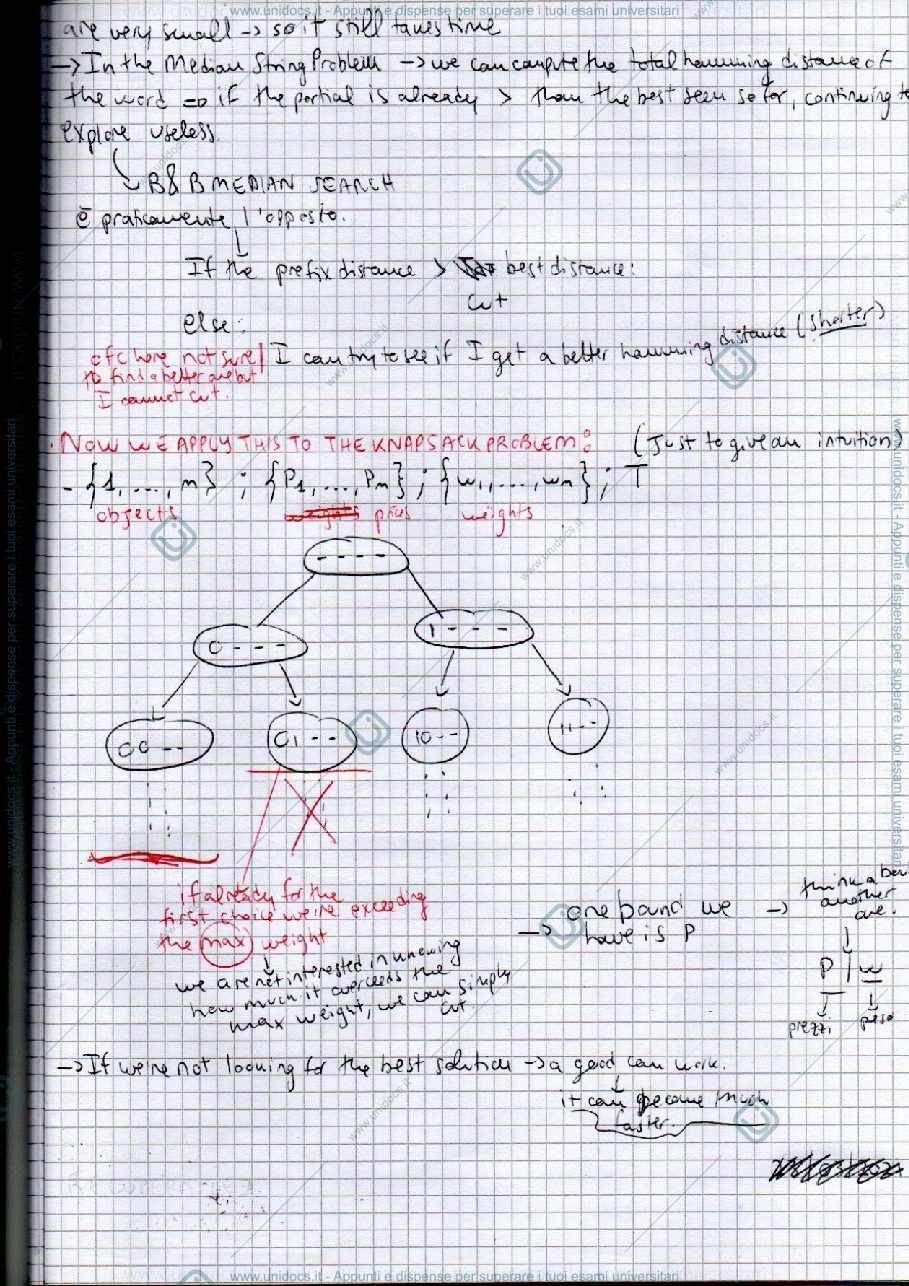 www.unidocs.it - Appunti e dispense per superare i tuoi esami universitari
are very small -> so it still takes time
-> In the Median String Problem -> we can compute the total hamming distance of
the word => if the partial is already > than the best seen so far, continuing to
explore useless
B&B MEDIAN SEARCH
è praticamente l'opposto.
If the prefix distance > best distance:
cut
else:
I can try to see if I get a better hamming distance (shorter)
ofc here not sure
to find a better one but
I cannot cut.
. NOW WE APPLY THIS TO THE KNAPSACK PROBLEM: (Just to give an intuition)
- {1, ..., n} ; {P1, ..., Pn} ; {w1, ..., wn} ; T
objects weights weights
- - - -
0 - - - 1 - - -
00 -- 01 -- 10 -- 11 --
if already for the
first choice we're exceeding
the max weight
we are not interested in knowing
how much it exceeds the
max weight, we can simply
cut
-> one bound we
have is P
-> think about
another
one.
P | w
prezzi peso
-> If we're not looking for the best solution -> a good can work.
it can become much
faster.
www.unidocs.it - Appunti e dispense per superare i tuoi esami universitari